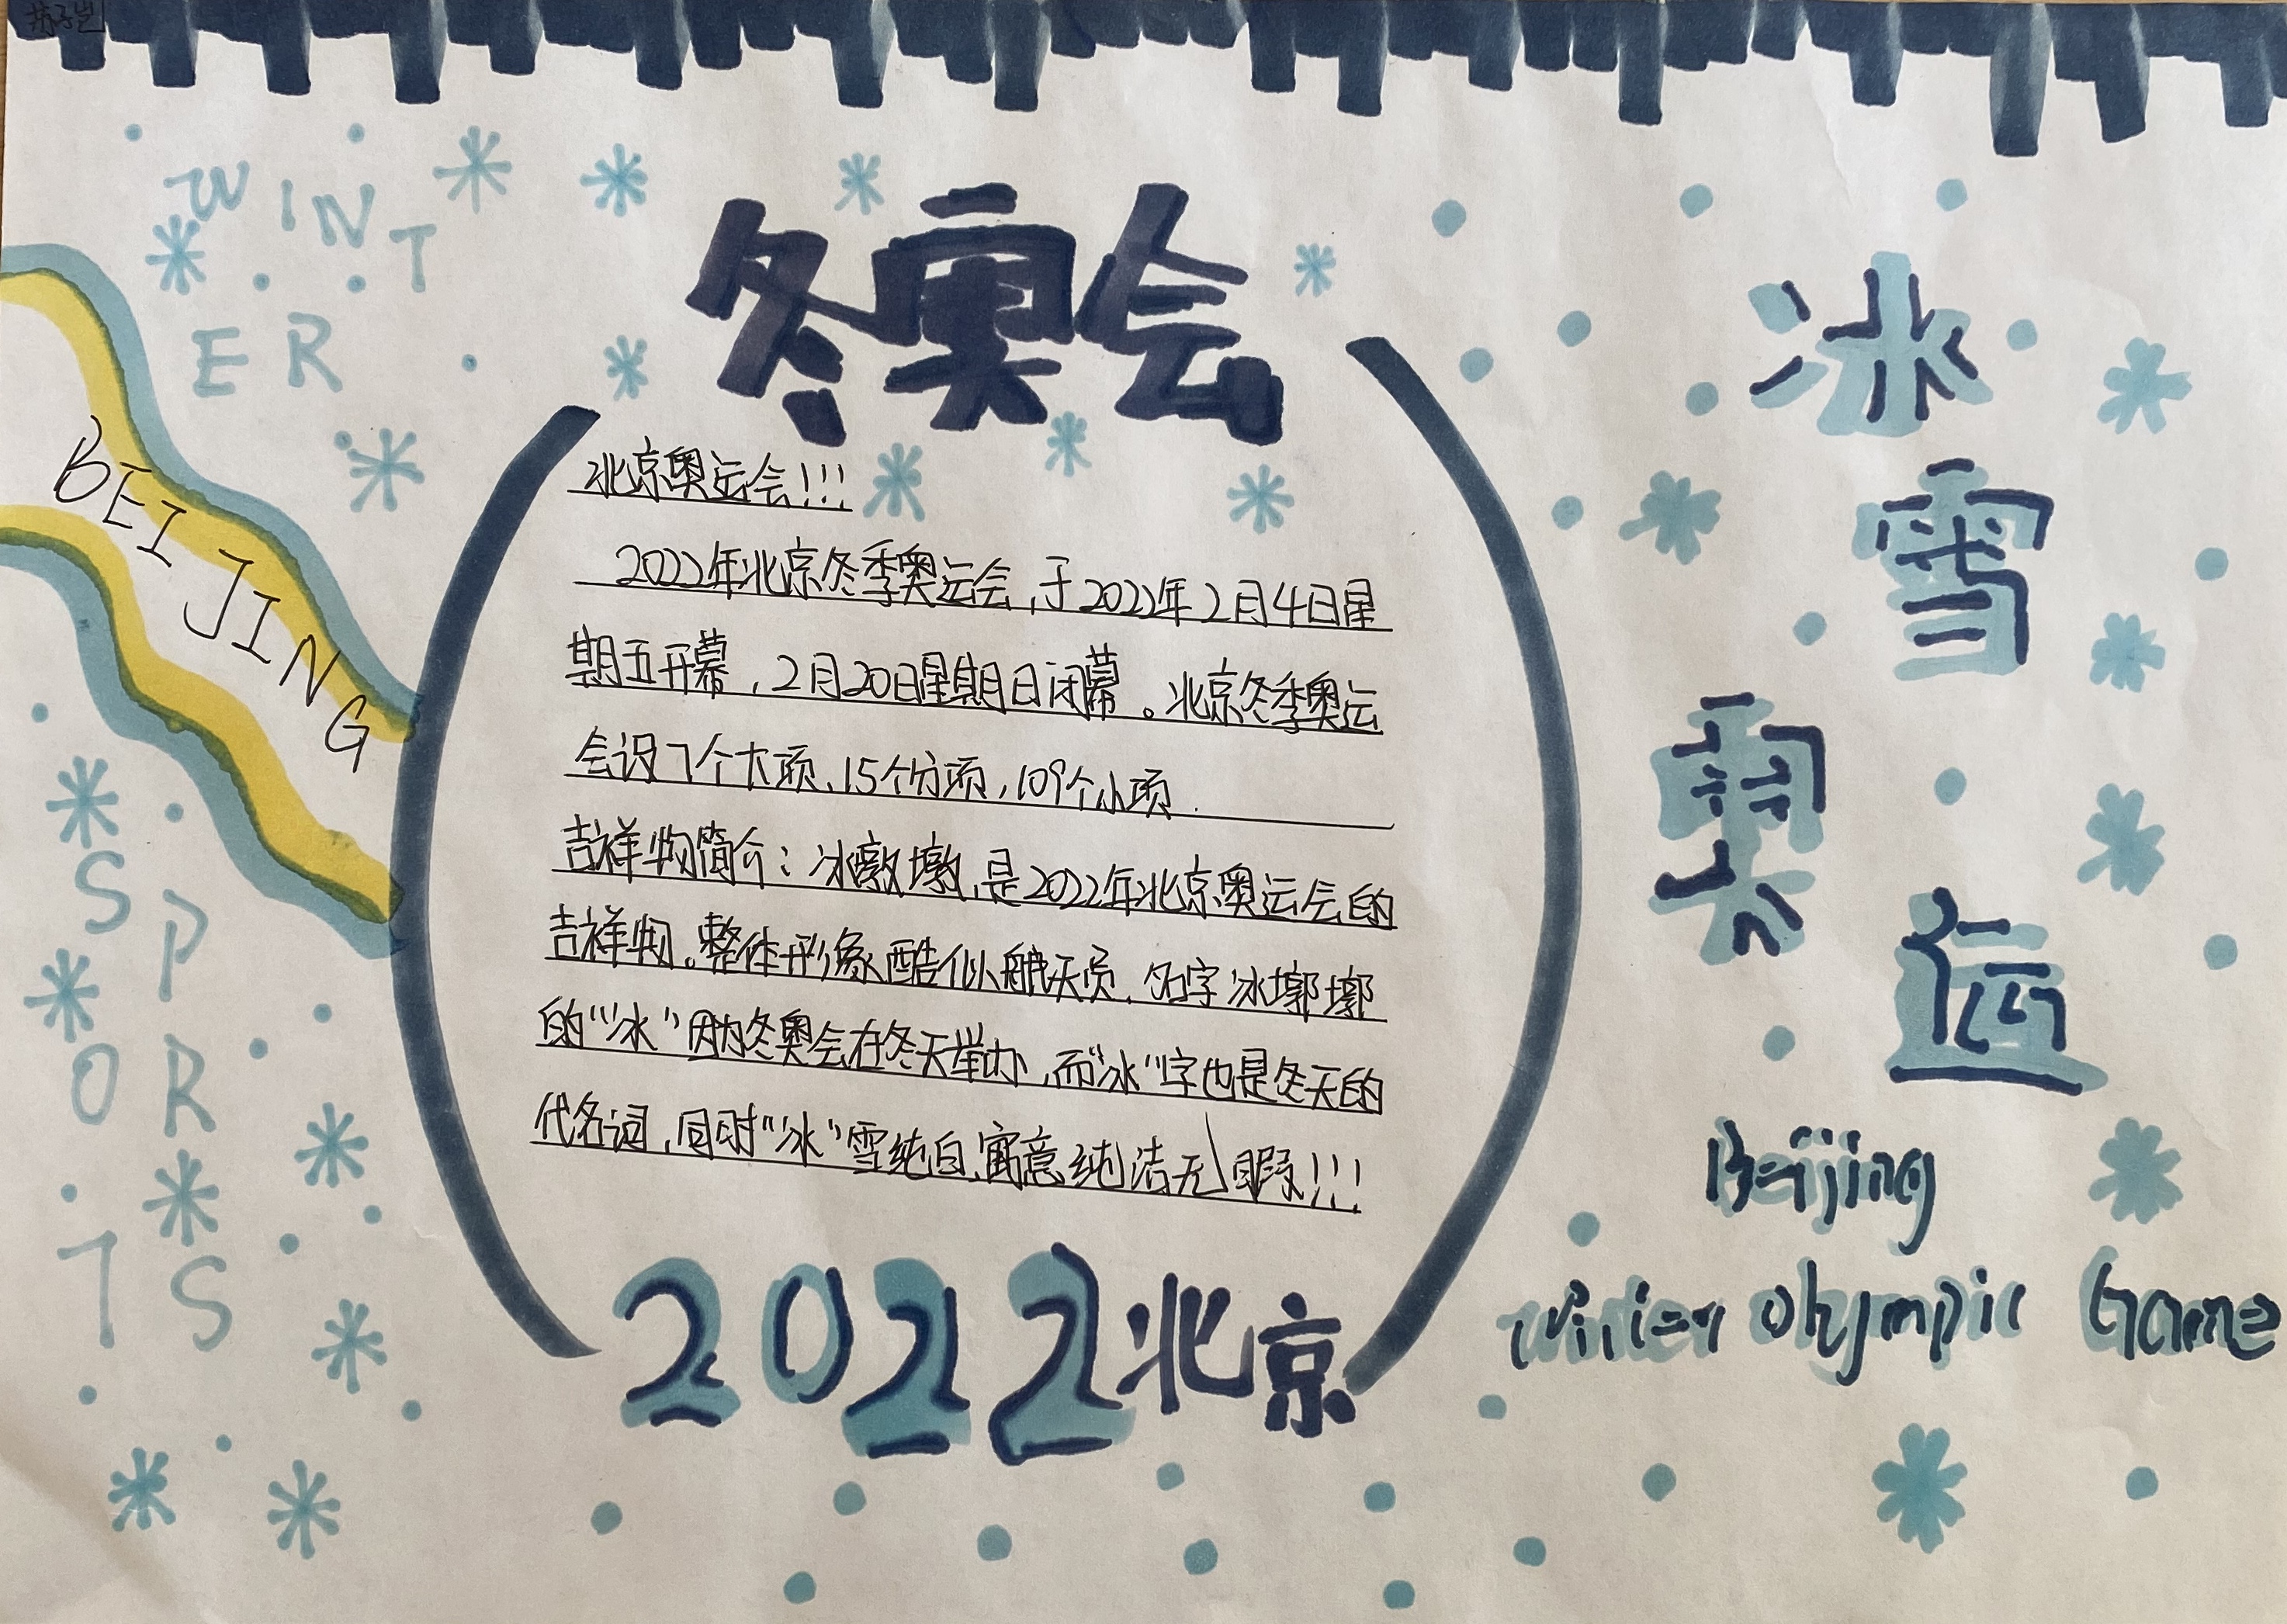 WINT
ER
BEIJING
SPORTS
冬奥会
北京奥运会!!!
2022年北京冬季奥运会,于2022年2月4日星
期五开幕,2月20日星期日闭幕。北京冬季奥运
会设7个大项、15个分项,109个小项.
吉祥物简介:冰墩墩,是2022年北京奥运会的
吉祥物。整体形象酷似航天员.名字冰墎墎
的“冰”因为冬奥会在冬天举办,而“冰”字也是冬天的
代名词,同时“冰”雪纯白,寓意纯洁无暇!!!
2022北京
冰
雪
奥
运
Beijing
Winter Olympic Game